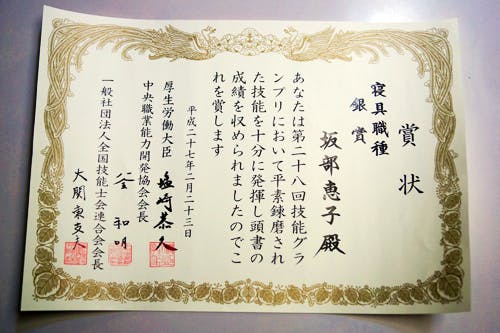 賞状
寝具職種
銀賞
坂部恵子殿
あなたは第二十八回技能グラ
ンプリにおいて平素錬磨され
た技能を十分に発揮し頭書の
成績を収められましたのでこ
れを賞します
平成二十七年二月二十三日
厚生労働大臣 塩崎恭久
中央職業能力開発協会会長
釜和明
一般社団法人全国技能士会連合会会長
大関東支夫